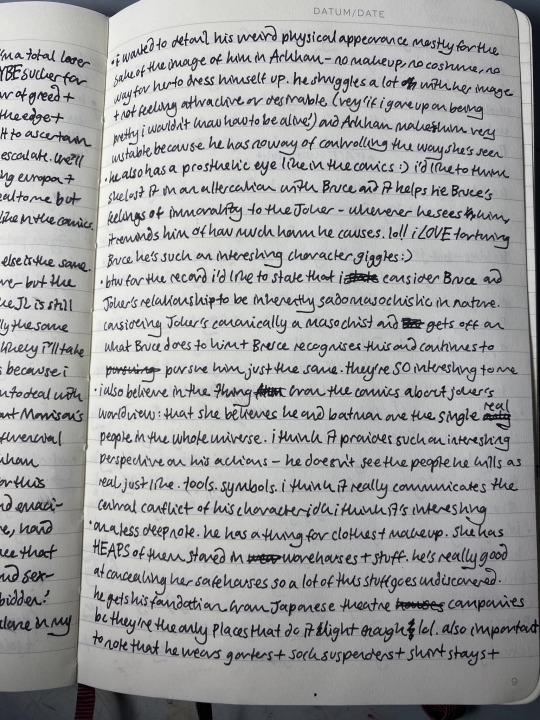 DATUM/DATE
m a total loser
YBE sucker for
w of greed +
the edge +
lt to ascertain
escalate. we'll
ng europa +
eal to me but
like in the comics.
else is the same.
ve - but the
ue JL is still
lly the same
likely i'll take
s because i
n to deal with
ant Morrison's
fluencial
kham
for this
nd emaci-
e, hard
ee that
and sex-
bidden!
alone in my
• i wanted to detail his weird physical appearance mostly for the
sake of the image of him in Arkham - no makeup, no costume, no
way for her to dress himself up. he struggles a lot with her image
+ not feeling attractive or desirable (very 'if i gave up on being
pretty i wouldn't know how to be alive') and Arkham makes him very
unstable because he has no way of controlling the way she's seen
• he also has a prosthetic eye like in the comics :) i'd like to think
she lost it in an altercation with Bruce and it helps tie Bruce's
feelings of immorality to the Joker - whenever he sees him,
it reminds him of how much harm he causes. lol! i LOVE torturing
Bruce he's such an interesting character giggles :)
• btw for the record i'd like to state that i consider Bruce and
Joker's relationship to be inherently sadomasochistic in nature.
considering Joker's canonically a masochist and gets off on
what Bruce does to him + Bruce recognises this and continues to
pursue him just the same. they're SO interesting to me
• i also believe in the thing from the comics about joker's
worldview: that she believes he and batman are the single real
people in the whole universe. i think it provides such an interesting
perspective on his actions - he doesn't see the people he kills as
real, just like. tools. symbols. i think it really communicates the
central conflict of his character idk i think it's interesting
• on a less deep note. he has a thing for clothes + makeup. she has
HEAPS of them stored in warehouses + stuff. he's really good
at concealing her safehouses so a lot of this stuff goes undiscovered.
he gets his foundation from Japanese theatre companies
bc they're the only places that do it light enough lol. also important
to note that he wears garters + sock suspenders + shirt stays +
9